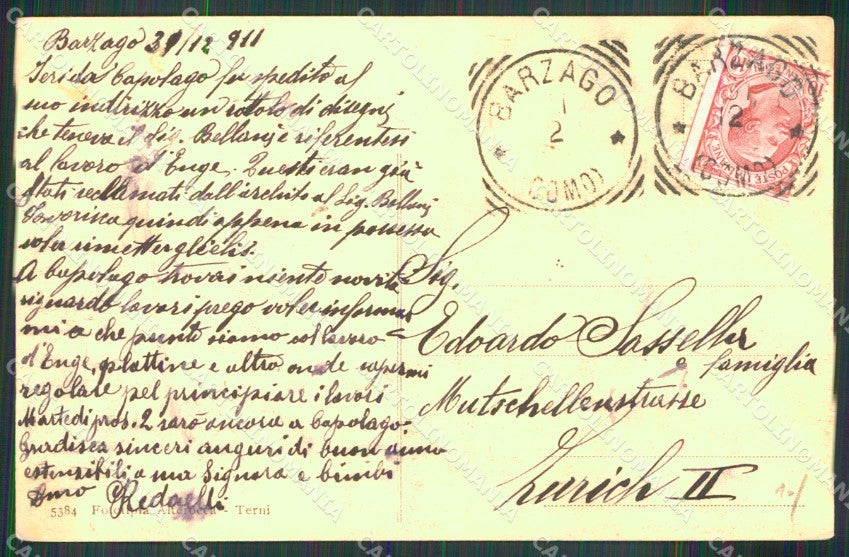 Barzago 31/12 911
Ieri da Capolago fu spedito al
suo indirizzo un rotolo di disegni
che teneva il Sig. Bellani e riferentesi
al lavoro d'Enge. Questi eran già
stati reclamati dall'archito al Sig. Bellani
Favorisca quindi appena in possesso
voler rimetterglielis.
A Capolago trovai niente novità
riguardo lavori prego voler informar
mi a che punto siamo col lavoro
d'Enge, plattine e altro onde sapermi
regolare pel principiare i lavori
Martedi pros. 2 sarò ancora a Capolago
Gradisca sinceri auguri di buon anno
estensibili a sua Signora e bimbi
Redaelli
5384 Fototipia Alterocca - Terni
BARZAGO
1
2
(COMO)
BARZAGO
12
(COMO)
POSTE ITALIANE
Sig.
Edoardo Sasseller
e famiglia
Mutschellenstrasse
Zurich II
CARTOLINOMANIA